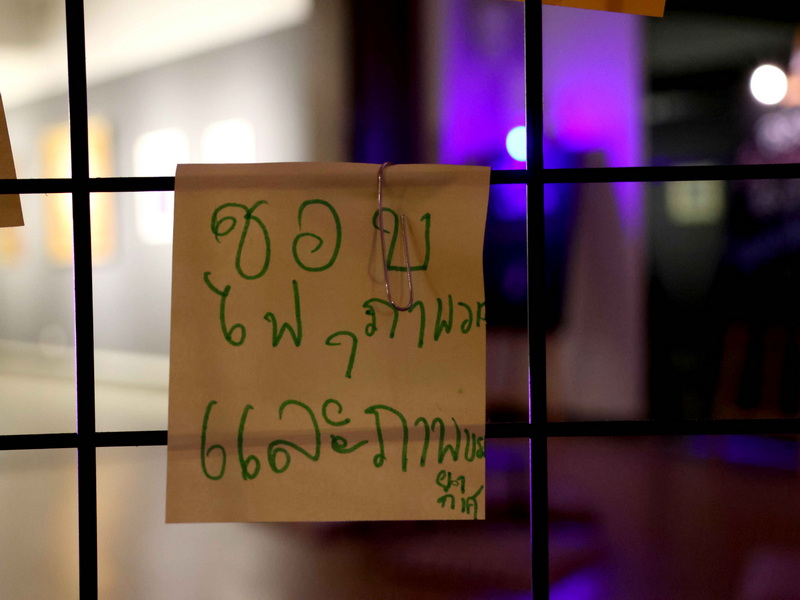 ชอบ
ไฟ ๆ ภาพวาด
และภาพบร
ยา
กาศ